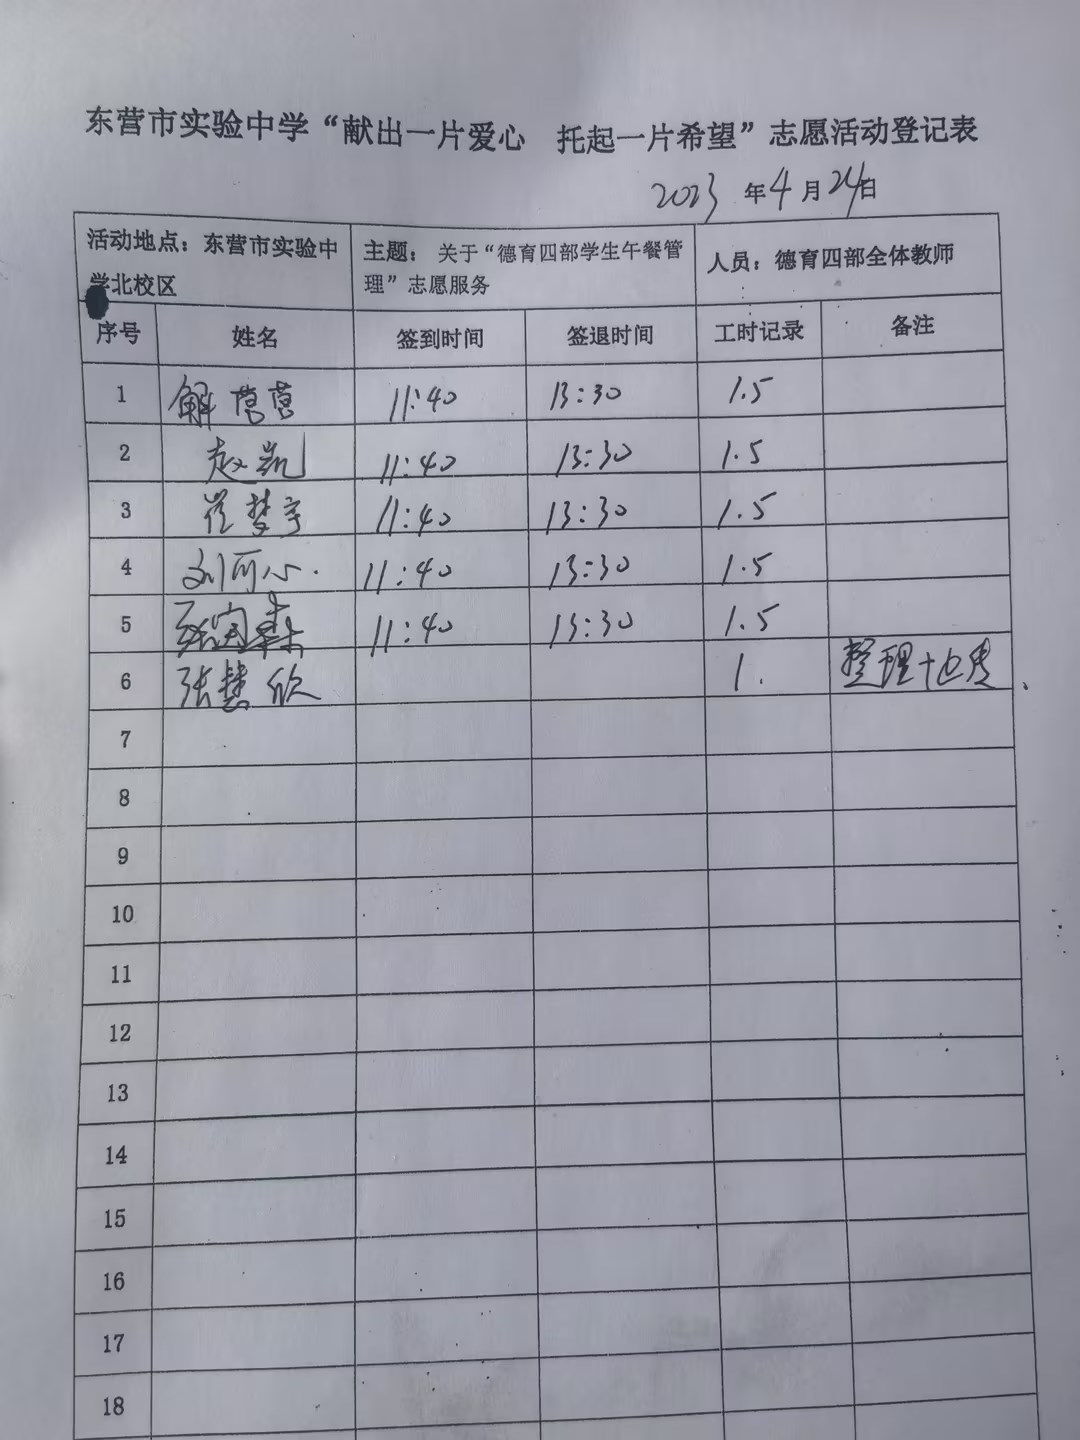 东营市实验中学“献出一片爱心 托起一片希望”志愿活动登记表
2023年4月24日
活动地点：东营市实验中学北校区 主题：关于“德育四部学生午餐管理”志愿服务 人员：德育四部全体教师
序号 姓名 签到时间 签退时间 工时记录 备注
1 解营营 11:40 13:30 1.5
2 赵凯 11:40 13:30 1.5
3 崔梦宇 11:40 13:30 1.5
4 刘可心 11:40 13:30 1.5
5 11:40 13:30 1.5
6 张慧欣 1. 整理
7
8
9
10
11
12
13
14
15
16
17
18